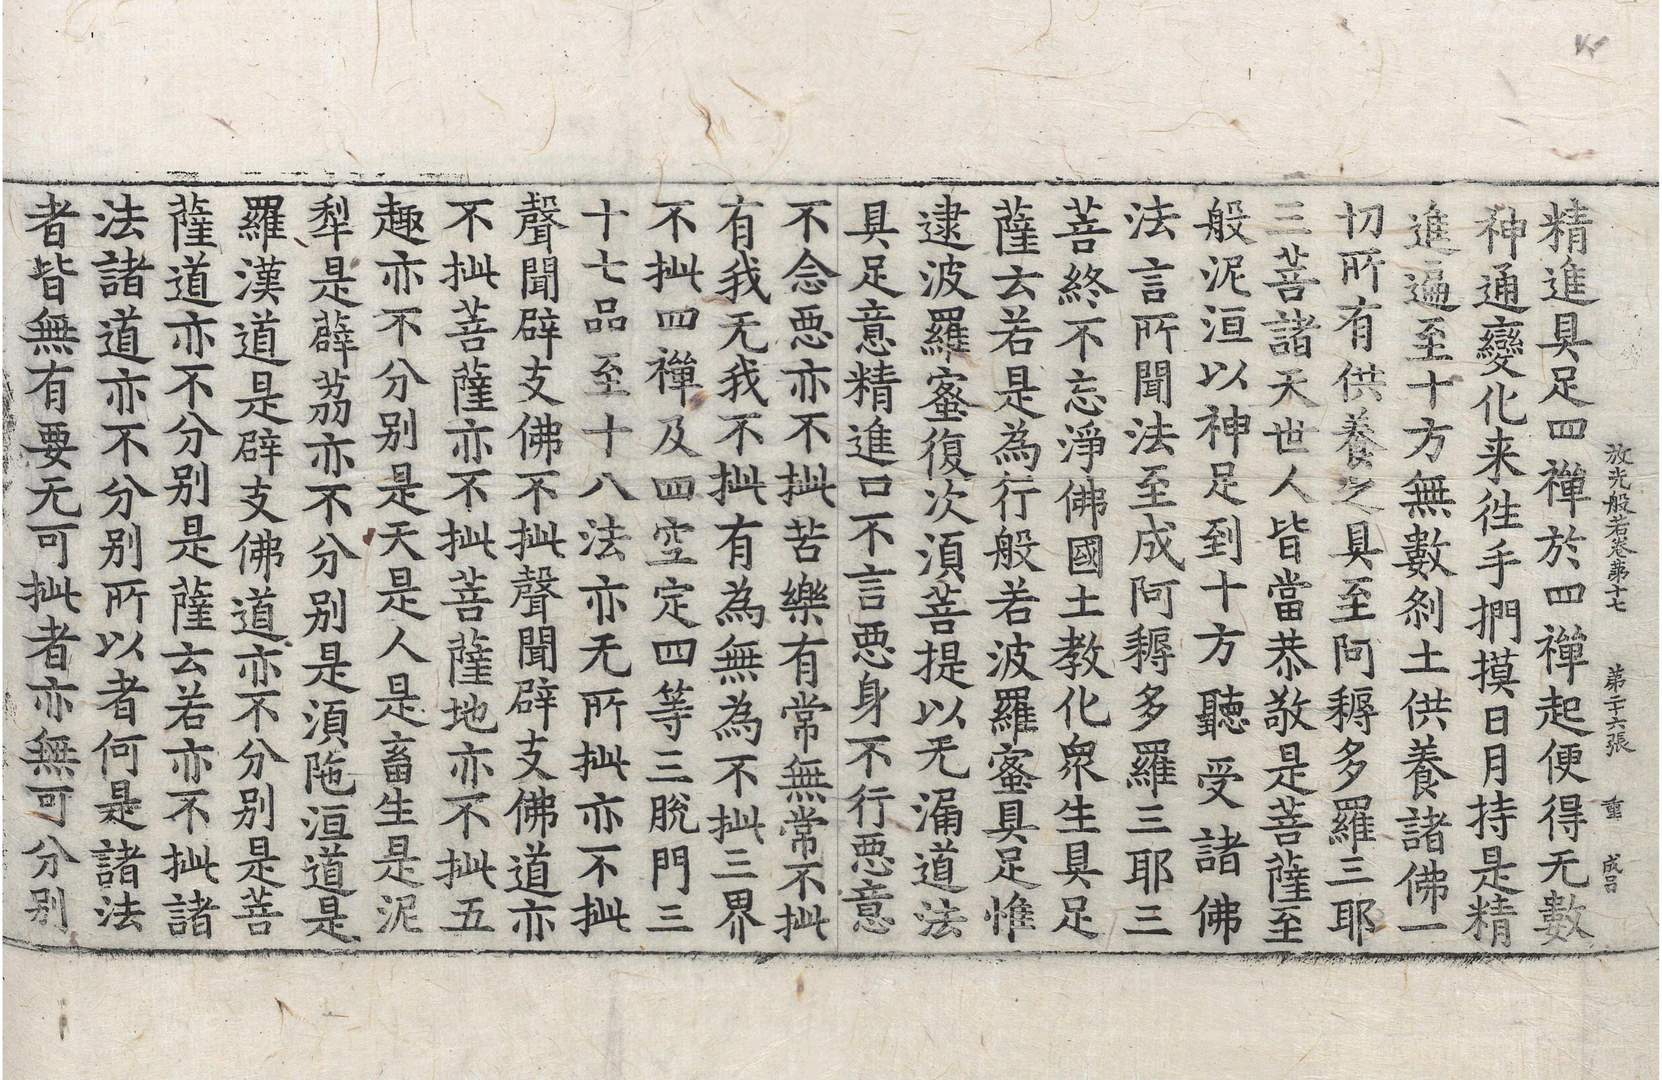 放光般若卷第十七 第二十六張 重 成呂
精進具足四禪於四禪起便得无數
神通變化来徃手捫摸日月持是精
進遍至十方無數刹土供養諸佛一
切所有供養之具至阿耨多羅三耶
三菩諸天世人皆當恭敬是菩薩至
般泥洹以神足到十方聽受諸佛
法言所聞法至成阿耨多羅三耶三
菩終不忘淨佛國土教化衆生具足
薩云若是為行般若波羅蜜具足惟
逮波羅蜜復次須菩提以无漏道法
具足意精進口不言惡身不行惡意
不念惡亦不㧗苦樂有常無常不㧗
有我无我不㧗有為無為不㧗三界
不㧗四禪及四空定四等三脫門三
十七品至十八法亦无所㧗亦不㧗
聲聞辟支佛不㧗聲聞辟支佛道亦
不㧗菩薩亦不㧗菩薩地亦不㧗五
趣亦不分別是天是人是畜生是泥
犁是薜荔亦不分別是須陁洹道是
羅漢道是辟支佛道亦不分別是菩
薩道亦不分別是薩云若亦不㧗諸
法諸道亦不分別所以者何是諸法
者皆無有要无可㧗者亦無可分別